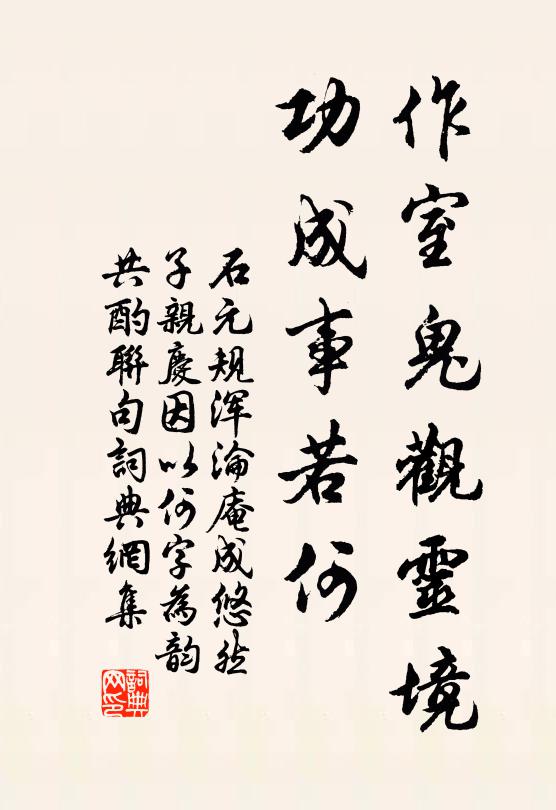 作室鬼觀靈境
功成事若何
石元規渾淪庵成悠然
子親慶因以何字為韵
共酌聯句詞典網集
詞典
网印